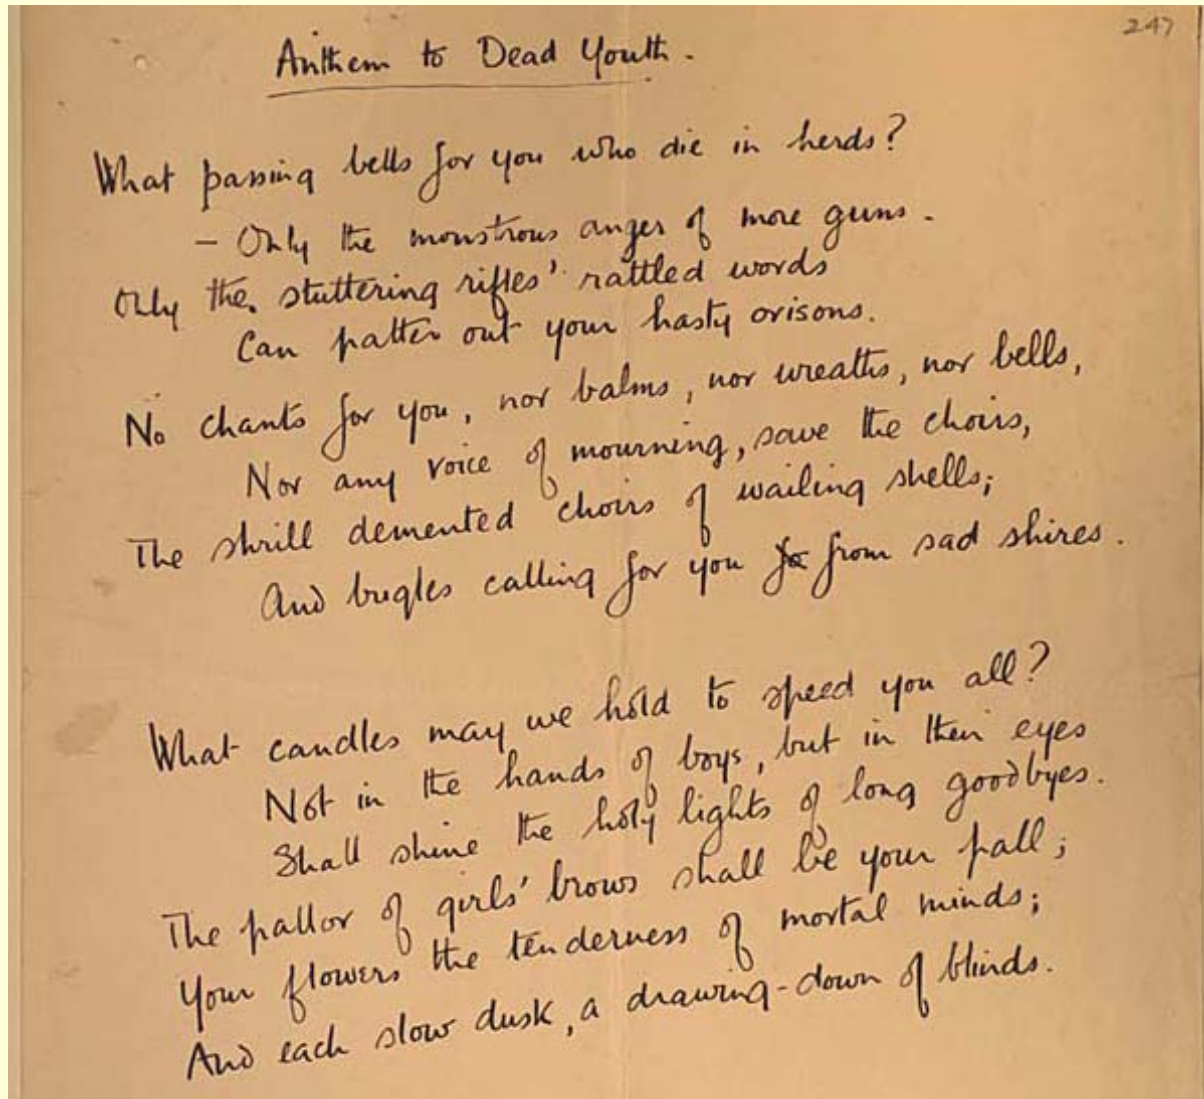 247
Anthem to Dead Youth.
What passing bells for you who die in herds?
– Only the monstrous anger of more guns.
Only the stuttering rifles' rattled words
Can patter out your hasty orisons.
No chants for you, nor balms, nor wreaths, nor bells,
Nor any voice of mourning, save the choirs,
The shrill demented choirs of wailing shells;
And bugles calling for you from sad shires.
What candles may we hold to speed you all?
Not in the hands of boys, but in their eyes
Shall shine the holy lights of long goodbyes.
The pallor of girls' brows shall be your pall;
Your flowers the tenderness of mortal minds;
And each slow dusk, a drawing-down of blinds.